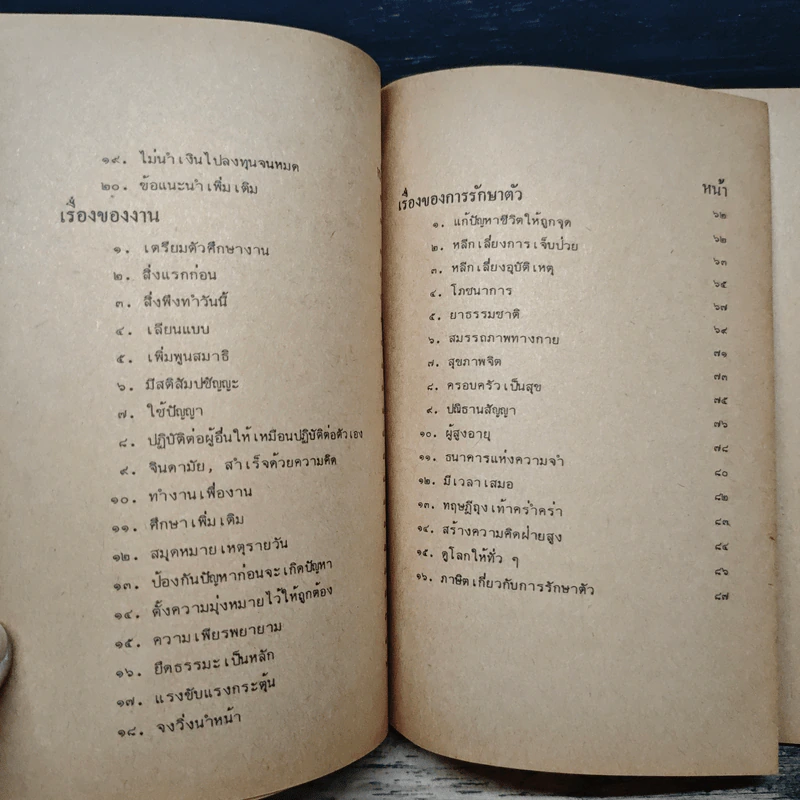 ๑๙. ไม่นำเงินไปลงทุนจนหมด
๒๐. ข้อแนะนำเพิ่มเติม
เรื่องของงาน
๑. เตรียมตัวศึกษางาน
๒. สิ่งแรกก่อน
๓. สิ่งพึงทำวันนี้
๔. เลียนแบบ
๕. เพิ่มพูนสมาธิ
๖. มีสติสัมปชัญญะ
๗. ใช้ปัญญา
๘. ปฏิบัติต่อผู้อื่นให้เหมือนปฏิบัติต่อตัวเอง
๙. จินตามัย, สำเร็จด้วยความคิด
๑๐. ทำงานเพื่องาน
๑๑. ศึกษาเพิ่มเติม
๑๒. สมุดหมายเหตุรายวัน
๑๓. ป้องกันปัญหาก่อนจะเกิดปัญหา
๑๔. ตั้งความมุ่งหมายไว้ให้ถูกต้อง
๑๕. ความเพียรพยายาม
๑๖. ยึดธรรมะเป็นหลัก
๑๗. แรงขับแรงกระตุ้น
๑๘. จงวิ่งนำหน้า
เรื่องของการรักษาตัว หน้า
๑. แก้ปัญหาชีวิตให้ถูกจุด ๖๒
๒. หลีกเลี่ยงการเจ็บป่วย ๖๒
๓. หลีกเลี่ยงอุบัติเหตุ ๖๓
๔. โภชนาการ ๖๕
๕. ยาธรรมชาติ ๖๗
๖. สมรรถภาพทางกาย ๖๙
๗. สุขภาพจิต ๗๑
๘. ครอบครัวเป็นสุข ๗๓
๙. ปณิธานสัญญา ๗๕
๑๐. ผู้สูงอายุ ๗๖
๑๑. ธนาคารแห่งความจำ ๗๘
๑๒. มีเวลาเสมอ ๘๐
๑๓. ทฤษฎีถุงเท้าคร่ำคร่า ๘๒
๑๔. สร้างความคิดฝ่ายสูง ๘๓
๑๕. ดูโลกให้ทั่ว ๆ ๘๔
๑๖. ภาษิตเกี่ยวกับการรักษาตัว ๘๖
๘๗